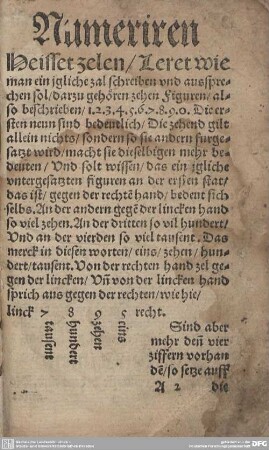 Numeriren
Heisset zelen/ Leret wie
man ein igliche zal schreiben vnd ausspre⸗
chen sol/ darzu gehören zehen Figuren/ al⸗
so beschrieben/ 1.2.3.4.5.6.7.8.9.0. Die er⸗
sten neun sind bedeutlich/ Die zehend gilt
allein nichts/ sondern so sie andern furge⸗
satzt wird/ macht sie dieselbigen mehr be⸗
deuten/ Vnd solt wissen/ das ein igliche
vntergesatzten figuren an der ersten stat/
das ist/ gegen der rechtē hand/ bedeut sich
selbs. An der andern gegē der lincken hand
so viel zehen. An der dritten so vil hundert/
Vnd an der vierden so viel tausent. Das
merck in diesen worten/ eins/ zehen/ hun⸗
dert/ tausent. Von der rechten hand zel ge⸗
gen der lincken/ Vn̄ von der lincken hand
sprich aus gegen der rechten/ wie hie/
linck 7 8 9 5 recht.
tausent
hundert
zehen
eins
Sind aber
mehr deñ vier
ziffern vorhan
dē/ so setze auff
A 2 die